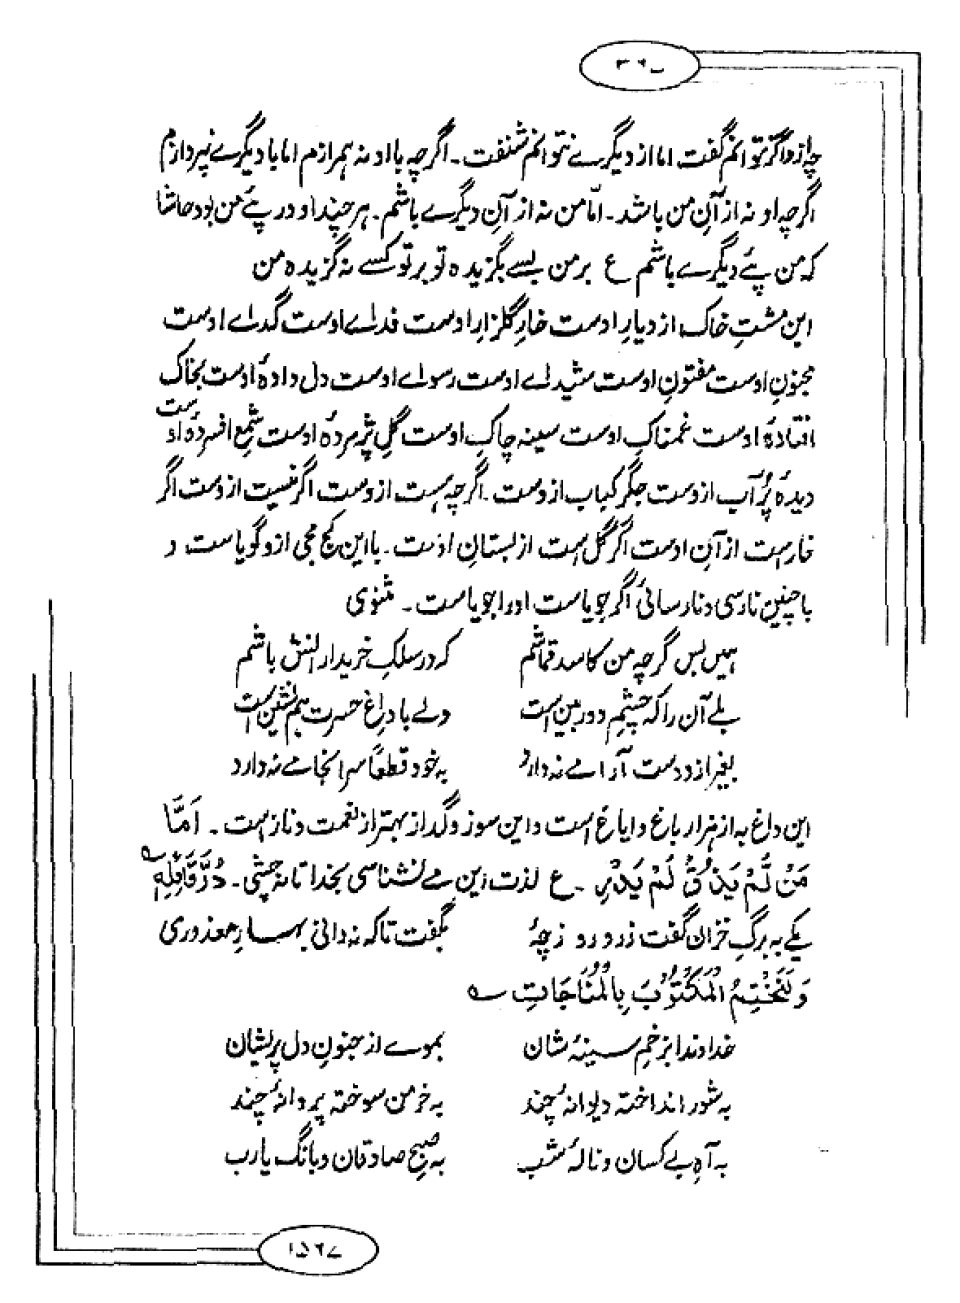 ۳۶۰
چہ از و اگر نتوانم گفت اما از دیگرے نتوانم شنفت۔ اگرچہ با او نہ ہمرازم اما با دیگرے نپردازم
اگرچہ او نہ از آنِ من باشد۔ امّا من نہ از آنِ دیگرے باشم۔ ہر چند او در پئے من بود حاشا
کہ من پئے دیگرے باشم ع بر من بسے بگزیدہ تو بر تو کسے نہ گزیدہ من
این مشتِ خاک از دیارِ اوست خارِ گلزارِ اوست فدائے اوست گدائے اوست
مجنونِ اوست مفتونِ اوست شیدائے اوست رسوائے اوست دل دادۂ اوست بخاک
افتادۂ اوست غمناکِ اوست سینہ چاکِ اوست گلِ پژمردۂ اوست شمعِ افسردۂ اوست
دیدہ پُر آب ازوست جگر کباب ازوست۔ اگرچہ ہست ازوست اگر نیست ازوست اگر
خارست از آنِ اوست اگر گل است از بستانِ اوست۔ با این کج مجی ازو گویاست و
با چنین نارسی و نارسائی اگر جویاست او را جویاست۔ مثنوی
ہمیں بس گرچہ من کاسد قماشم کہ در سلکِ خریدارانش باشم
بلے آن را کہ چشمِ دوربین است ولے با داغِ حسرت ہم نشین است
بغیر از دوست آرامے نہ دارد بہ خود قطعاً سرانجامے نہ دارد
این داغ بہ از ہزار باغ و ایاغ است و این سوز و گداز بہتر از نعمت و ناز است۔ اَمَّا
مَنْ لَّمْ یَذُقْ لَمْ یَدْرِ۔ ع لذت این مے نشناسی بخدا تا نہ چشی۔ دُرَّ قَائِلِہٖ
یکے بہ برگِ خزان گفت زرد رو ز چۂ بگفت تا کہ نہ دانی بہارِ معذوری
وَلَنَخْتِمُ الْمَکْتُوْبَ بِالْمُنَاجَاتِ
خداوندا بزخمِ سینۂ شان بموے از جنونِ دل پریشان
بہ شور انداختہ دیوانۂ چند بہ خرمن سوختہ پروانۂ چند
بہ آہِ بے کسان و نالۂ شب بہ صبحِ صادقان و بانگِ یارب
۱۵۶۷